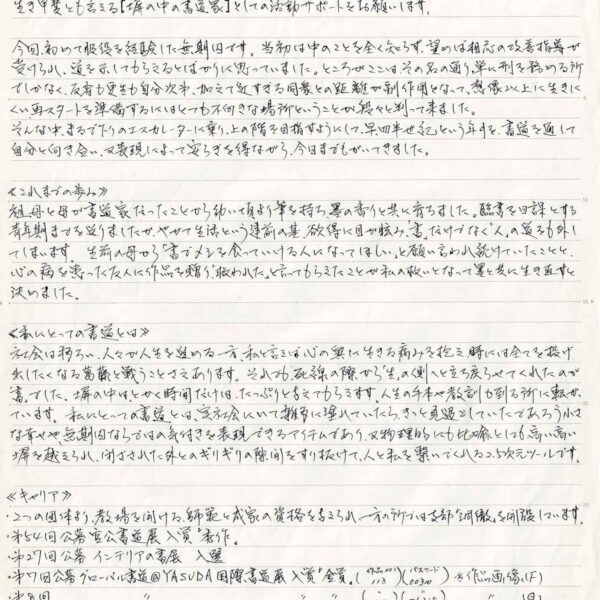 生き甲斐とも言える【塀の中の書道家】としての活動サポートをお願いします。
今回、初めて服役を経験した無期囚です。当初は中のことを全く知らず、望めば相応の改善指導が
受けられ、道を示してもらえるとばかりに思っていました。ところがここは、その名の通り、単に刑を務める所
でしかなく、反省も更生も自分次第、加えて近すぎる同衆との距離が副作用となって、想像以上に生きに
くい再スタートを準備するにはとても不向きな場所ということが段々と判って来ました。
そんな中まるで下りのエスカレーターに乗り、上の階を目指すようにして、早四半世紀という年月を、書道を通して
自分と向き合い、又表現によって安らぎを得ながら、今日までもがいてきました。
≪これまでの歩み≫
祖母と母が書道家だったことから幼い頃より筆を持ち、墨の香りと共に育ちました。臨書を日課とする
青年期までを送りましたが、やがて生活という建前の基、欲得に目が眩み、"書"だけでなく"人"の道をも外し
てしまいます。生前の母から「書でメシを食っていける人になってほしい」と願い言われ続けていたことと、
心の病を患った友人に作品を贈り"救われた"と言ってもらえたことが私の救いとなって墨と共に生き直すと
決めました。
≪私にとっての書道とは≫
社会は移ろい、人々が人生を進める一方、私と言えば心の奥に生きる痛みを抱え、時には全てを投げ
出したくなる葛藤と戦うことさえあります。それでも、死線の際から"生"の側へと立ち戻らせてくれたのが
"書"でした。塀の中はとかく時間だけは、たっぷりと与えてもらえます。人生の手本や教訓も到る所に転がっ
ています。私にとっての書道とは、実社会にいて雑多に塗れていたらきっと見過ごしていたであろう小さ
な幸せや無期囚ならではの気付きを表現できるアイテムであり、又物理的にも比喩としても、高い高い
塀を越えられ、閉ざされた外とのギリギリの隙間をすり抜けて、人と私を繋いでくれる2.5次元ツールです。
≪キャリア≫
・2つの団体より、教場を開ける、師範と成家の資格を与えられ、一方の所では支部"詞徹"を開設しています。
・第54回公募宣公書道展 入賞"秀作"。
・第27回公募 インテリアの書展 入選
・第7回公募グローバル書道@YASUDA国際書道展 入賞"金賞"。(作品No. 113)(パスワード 0030) ※作品画像(F)
・第8回 〃 〃